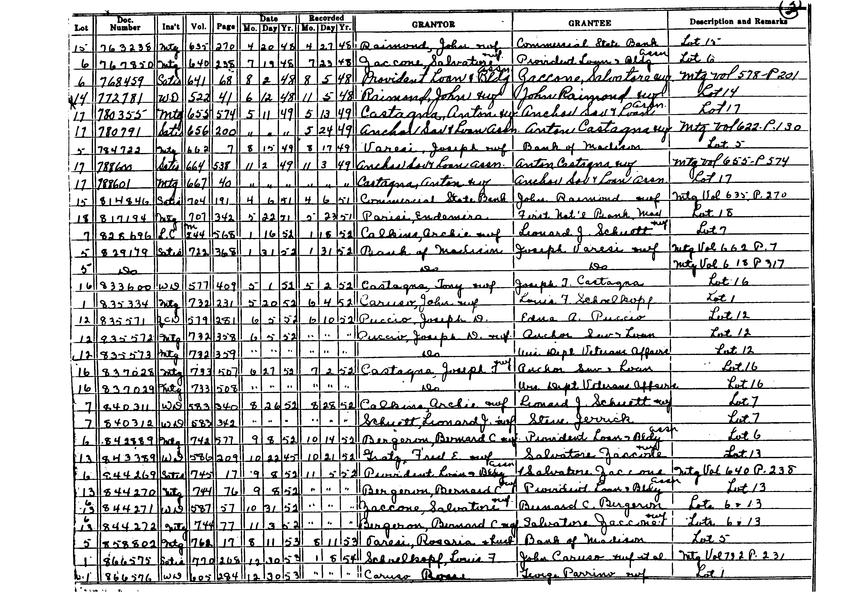 3
Lot Doc. Number Ins't Vol. Page Date Mo. Day Yr. Recorded Mo. Day Yr. GRANTOR GRANTEE Description and Remarks
15 763238 Mtg 635 270 4 20 48 4 27 48 Raimond, John + wf Commercial State Bank Lot 15
6 767850 Mtg 640 238 7 19 48 7 23 48 Jaccone, Salvatore + wf Provident Loan + Bldg Assn Lot 6
6 768459 Satis 641 68 8 2 48 8 5 48 Provident Loan + Bldg Assn Jaccone, Salvatore + wf Mtg Vol 578-P 201
14 772781 WD 522 41 6 12 48 11 5 48 Raimond, John + wf John Raimond + wf Lot 14
17 780355 Mtg 655 574 5 11 49 5 13 49 Castagna, Anton + wf Anchor Sav + Loan Assn. Lot 17
17 780791 Sat. 656 200 " " " 5 24 49 Anchor Sav + Loan Assn Anton Castagna + wf Mtg Vol 622-P.130
5 784722 " 662 7 8 15 49 8 17 49 Varesi, Joseph + wf Bank of Madison Lot 5
17 788600 Satis 664 538 11 2 49 11 3 49 Anchor Sav + Loan Assn. Anton Castagna + wf Mtg Vol 655-P 574
17 788601 Mtg 667 40 " " " " " " Castagna, Anton + wf Anchor Sav + Loan Assn. Lot 17
15 814846 Satis 704 191 4 6 51 4 6 51 Commercial State Bank John Raimond + wf Mtg Vol 635 P. 270
18 817194 Mtg 707 342 5 22 51 5 23 51 Parisi, First Nat'l Bank, Mad Lot 18
7 828696 L.C m 244 568 1 16 52 1 18 52 Calkins, Archie + wf Leonard J. Schuett + wf Lot 7
5 829179 Satis 722 368 1 31 52 1 31 52 Bank of Madison Joseph Varesi + wf Mtg Vol 662 P. 7
5 Do Do Do Mtg Vol 618 P 317
16 833600 WD 577 409 5 1 52 5 2 52 Castagna, Tony + wf Joseph T. Castagna Lot 16
1 835334 Mtg 732 231 5 20 52 6 4 52 Caruso, John + wf Louis F. Schoelkopf Lot 1
12 835571 QCD 579 281 6 5 52 6 10 52 Puccio, Joseph D. Edna A. Puccio Lot 12
12 835572 Mtg 732 358 6 5 52 " " " Puccio, Joseph D. + wf Anchor Sav + Loan Lot 12
12 835573 Mtg 732 359 " " " " " " Do Wis. Dept Veterans Affairs Lot 12
16 837028 Mtg 733 507 6 27 52 7 2 52 Castagna, Joseph T + wf Anchor Sav + Loan Lot 16
16 837029 Mtg 733 508 " " " " " " Do Wis. Dept Veterans Affairs Lot 16
7 840311 WD 583 340 8 26 52 8 28 52 Calkins, Archie + wf Leonard J. Schuett + wf Lot 7
7 840312 WD 583 342 " " " " " " Schuett, Leonard J. + wf Steve Jerrick Lot 7
6 842889 Mtg 742 577 9 8 52 10 14 52 Bergeron, Bernard C + wf Provident Loan + Bldg Assn Lot 6
13 843389 WD 586 209 10 22 45 10 21 52 Fred E. + wf Salvatore Jaccone + wf Lot 13
6 844269 Satis 745 17 9 8 52 11 5 52 Provident Loan + Bldg Assn Salvatore Jaccone Mtg Vol 640 P. 238
13 844270 Mtg 744 76 9 8 52 " " " Bergeron, Bernard C + wf Provident Loan + Bldg Assn Lot 13
6 13 844271 WD 587 57 10 31 52 " " " Jaccone, Salvatore + wf Bernard C. Bergeron Lots 6 + 13
6 13 844272 Mtg 744 77 11 3 52 " " " Bergeron, Bernard C + wf Salvatore Jaccone + wf Lots 6 + 13
5 858802 Mtg 762 17 8 11 53 8 11 53 Varesi, Rosaria + husb Bank of Madison Lot 5
1 866575 Satis 770 268 12 30 53 1 8 54 Schoelkopf, Louis F John Caruso + wf et al Mtg Vol 732 P. 231
1 866576 WD 605 284 12 30 53 " " " Caruso Rose George Parrino + wf Lot 1